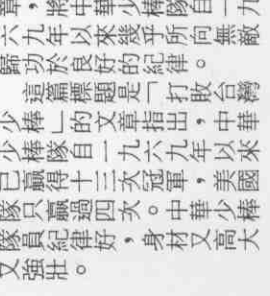 章，將中華少棒隊自一九
六九年以來幾乎所向無敵
歸功於良好的紀律。
這篇標題是「打敗台灣
少棒」的文章指出，中華
少棒隊自一九六九年以來
已贏得十三次冠軍，美國
隊只贏過四次。中華少棒
隊員紀律好，身材又高大
又強壯。